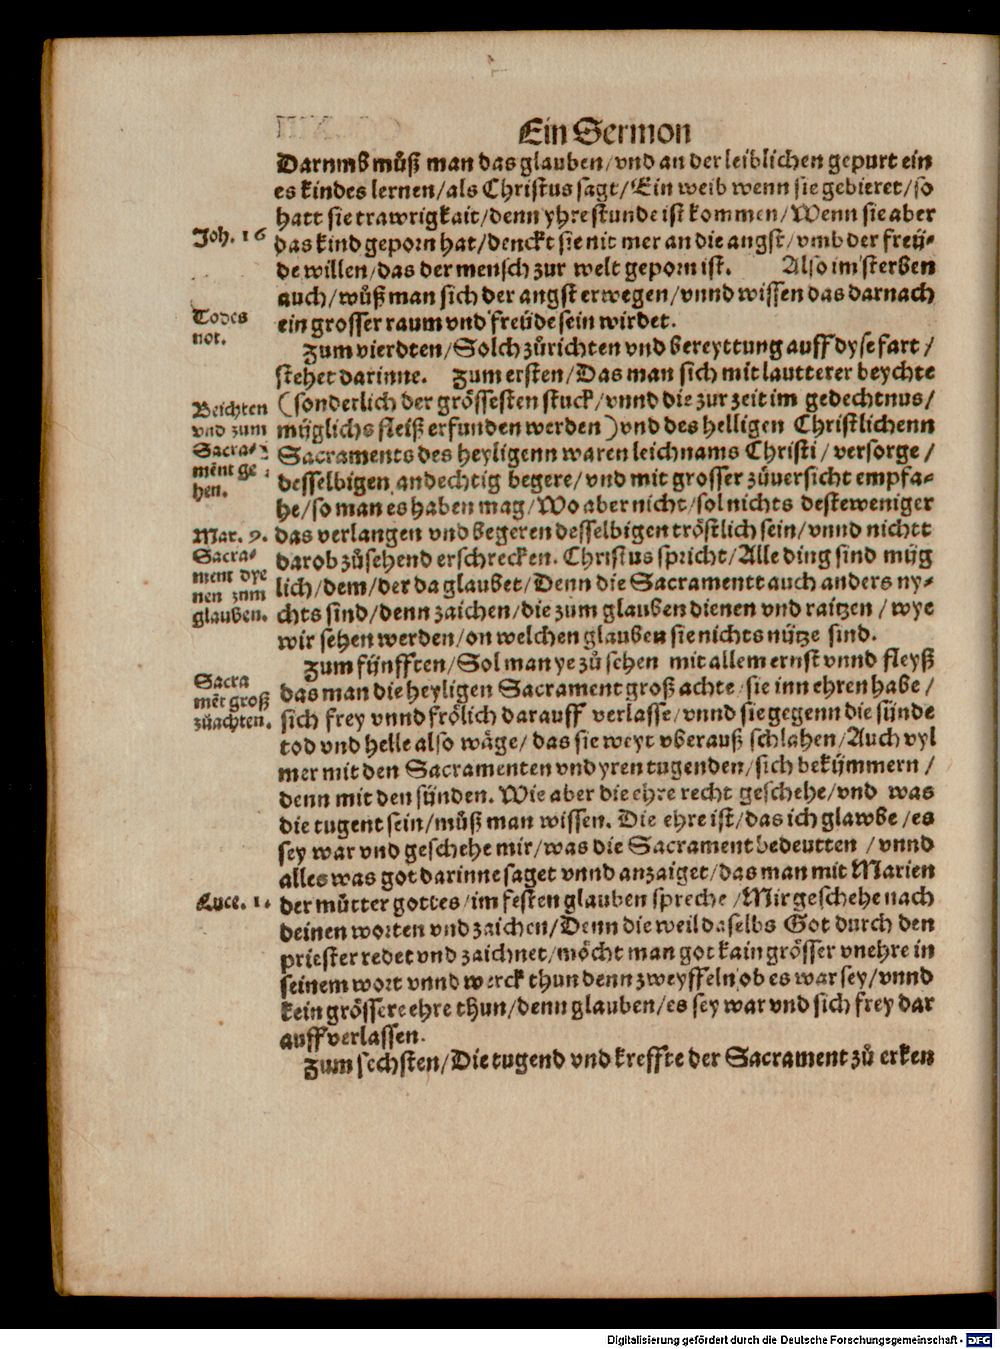 Ein Sermon
Darumb můß man das glauben/vnd an der leiblichen gepurt ein
es kindes lernen/als Christus sagt/Ein weib wenn sie gebieret/so
hatt sie trawrigkait/denn yhre stunde ist kommen/Wenn sie aber
Joh. 16
das kind geporn hat/denckt sie nit mer an die angst/vmb der freü-
de willen/das der mensch zur welt geporn ist. Also im sterben
auch/můß man sich der angst erwegen/vnnd wissen das darnach
Todes
not.
ein grosser raum vnd freüde sein wirdet.
Zum vierdten/Solch zůrichten vnd bereyttung auff dyse fart/
stehet darinne. Zum ersten/Das man sich mit lautterer beychte
Beichten
vnd zum
Sacra-
mēnt ge
hen.
(sonderlich der grössesten stuck/vnnd die zur zeit im gedechtnus/
müglichs fleiß erfunden werden)vnd des helligen Christlichenn
Sacraments des heyligenn waren leichnams Christi/versorge/
desselbigen andechtig begere/vnd mit grosser zůuersicht empfa-
he/so man es haben mag/Wo aber nicht/sol nichts desteweniger
Mar. 9.
Sacra-
ment dye
nen zum
glauben.
das verlangen vnd begeren desselbigen tröstlich sein/vnnd nichtt
darob zůsehend erschrecken. Christus spricht/Alle ding sind müg
lich/dem/der da glaubet/Denn die Sacramentt auch anders ny-
chts sind/denn zaichen/die zum glauben dienen vnd raitzen/wye
wir sehen werden/on welchen glauben sie nichts nütze sind.
Zum fünfften/Sol man ye zů sehen mit allem ernst vnnd fleyß
Sacra
mēt groß
zůachten.
das man die heyligen Sacrament groß achte/sie inn ehren habe/
sich frey vnnd frölich darauff verlasse/vnnd sie gegenn die sünde
tod vnd helle also wäge/das sie weyt vberauß schlahen/Auch vyl
mer mit den Sacramenten vnd yren tugenden/sich bekümmern/
denn mit den sünden. Wie aber die ehre recht geschehe/vnd was
die tugent sein/můß man wissen. Die ehre ist/das ich glawbe/es
sey war vnd geschehe mir/was die Sacrament bedeutten/vnnd
alles was got darinne saget vnnd anzaiget/das man mit Marien
Luce. 1.
der můtter gottes/im festen glauben spreche/Mir geschehe nach
deinen worten vnd zaichen/Denn die weil daselbs Got durch den
priester redet vnd zaichnet/möcht man got kain grösser vnehre in
seinem wort vnnd werck thun denn zweyffeln ob es war sey/vnnd
kein grössere ehre thun/denn glauben/es sey war vnd sich frey dar
auff verlassen.
Zum sechsten/Die tugend vnd kreffte der Sacrament zů erken
Digitalisierung gefördert durch die Deutsche Forschungsgemeinschaft - DFG